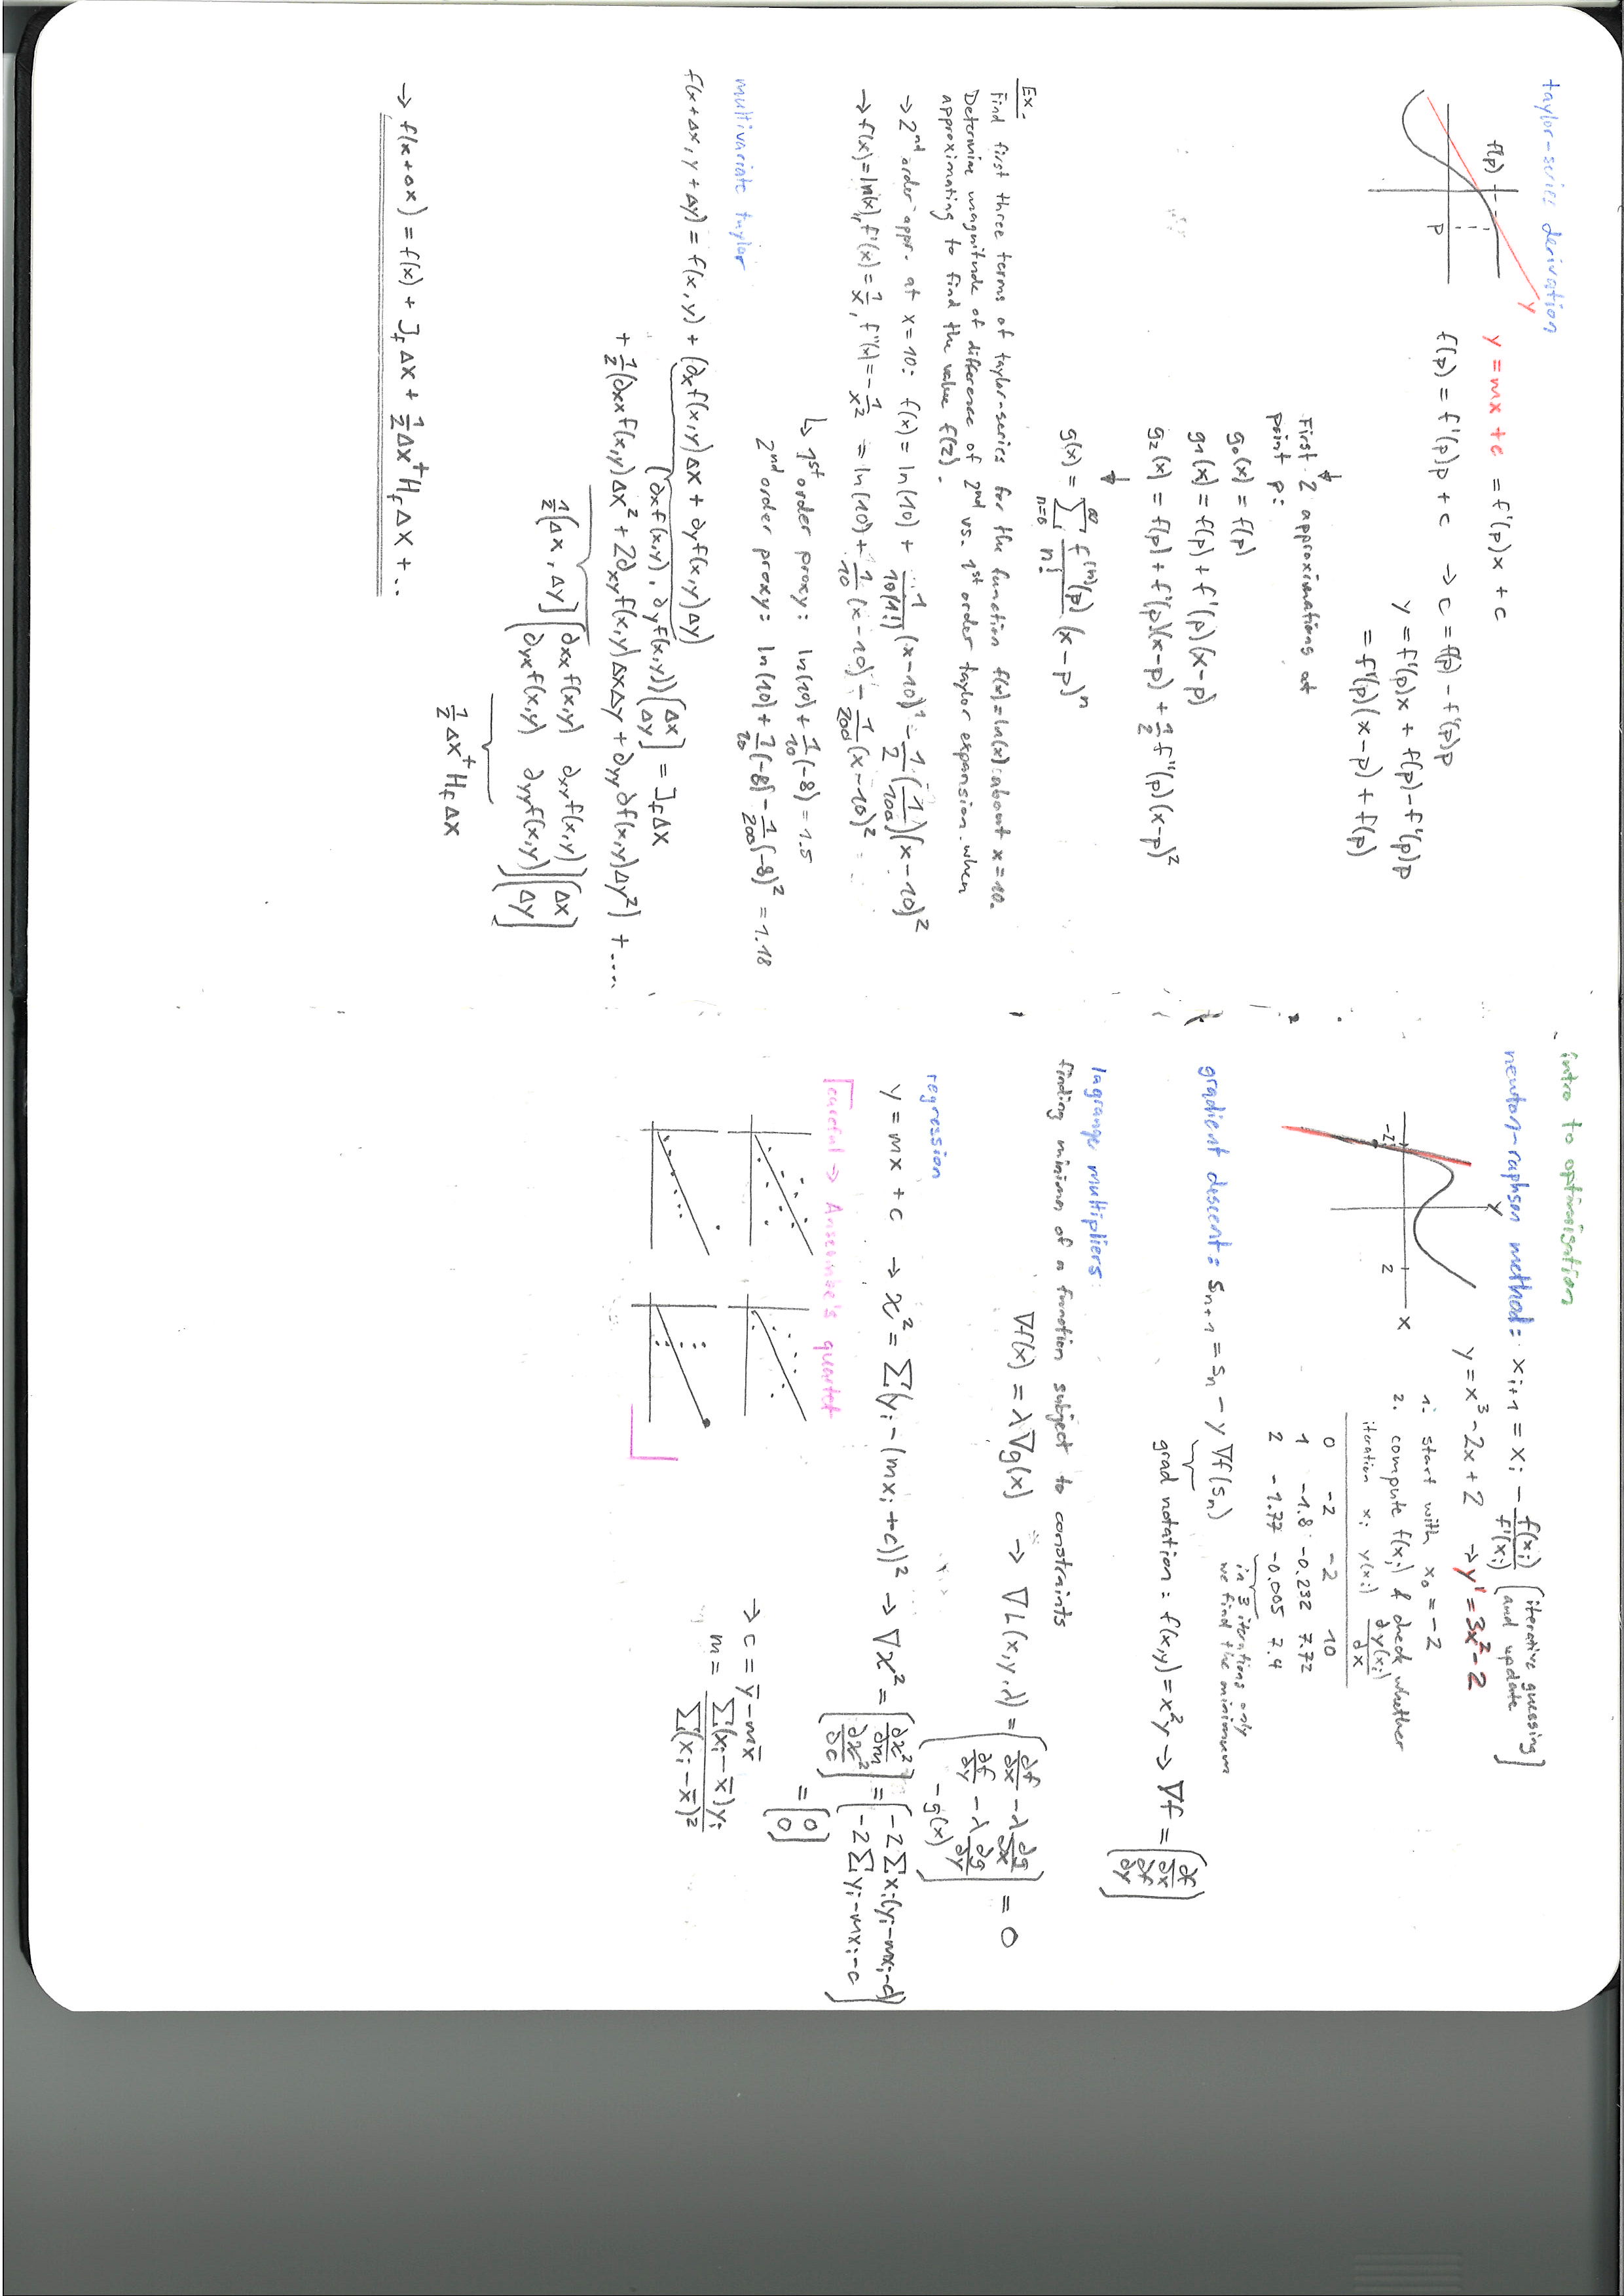 taylor-series derivation
y
f(p)
p
y = mx + c = f'(p)x + c
f(p) = f'(p)p + c → c = f(p) - f'(p)p
y = f'(p)x + f(p) - f'(p)p
= f'(p)(x-p) + f(p)
↓
First 2 approximations at
point p:
g₀(x) = f(p)
g₁(x) = f(p) + f'(p)(x-p)
g₂(x) = f(p) + f'(p)(x-p) + 1/2 f''(p)(x-p)²
↓
g(x) = ∑_{n=0}^{∞} f^(n)(p)/n! (x-p)^n
Ex.
Find first three terms of taylor-series for the function f(x)=ln(x) about x=10.
Determine magnitude of difference of 2nd vs. 1st order taylor expansion when
approximating to find the value f(2).
→ 2nd order appr. at x=10: f(x) = ln(10) + 1/10(1!) (x-10)¹ - 1/2 (1/100)(x-10)²
→ f(x)=ln(x), f'(x)=1/x, f''(x)=-1/x² = ln(10) + 1/10 (x-10) - 1/200 (x-10)²
↳ 1st order proxy: ln(10) + 1/10 (-8) = 1.5
2nd order proxy: ln(10) + 1/10 (-8) - 1/200 (-8)² = 1.18
multivariate taylor
f(x+Δx, y+Δy) = f(x,y) + (∂xf(x,y)Δx + ∂yf(x,y)Δy)
(∂xf(x,y), ∂yf(x,y)) [Δx Δy] = J_f Δx
+ 1/2 (∂xxf(x,y)Δx² + 2∂xyf(x,y)ΔxΔy + ∂yy∂f(x,y)Δy²) + ....
1/2 [Δx, Δy] [∂xxf(x,y) ∂xyf(x,y)
∂yxf(x,y) ∂yyf(x,y)] [Δx Δy]
1/2 Δx^t H_f Δx
→ f(x+Δx) = f(x) + J_f Δx + 1/2 Δx^t H_f Δx + ..
intro to optimisation
newton-raphson method: x_{i+1} = x_i - f(x_i)/f'(x_i) [iterative guessing
and update]
y = x³ - 2x + 2 → y' = 3x² - 2
y
x
-2
2
1. start with x₀ = -2
2. compute f(x_i) & check whether
iteration x_i y(x_i) ∂y(x_i)/∂x
0 -2 -2 10
1 -1.8 -0.232 7.72
2 -1.77 -0.005 7.4
in 3 iterations only
we find the minimum
gradient descent: s_{n+1} = s_n - γ ∇f(s_n)
grad notation: f(x,y) = x²y → ∇f = [∂f/∂x ∂f/∂y]
lagrange multipliers:
finding minima of a function subject to constraints
∇f(x) = λ∇g(x) → ∇L(x,y,λ) = [∂f/∂x - λ ∂g/∂x
∂f/∂y - λ ∂g/∂y
-g(x)] = 0
regression
y = mx + c → χ² = ∑(y_i - (mx_i + c))² → ∇χ² = [∂χ²/∂m ∂χ²/∂c] = [-2∑x_i(y_i-mx_i-c)
-2∑y_i-mx_i-c]
= [0 0]
careful → Anscombe's quartet
→ c = ȳ - mx̄
m = ∑(x_i - x̄)y_i / ∑(x_i - x̄)²